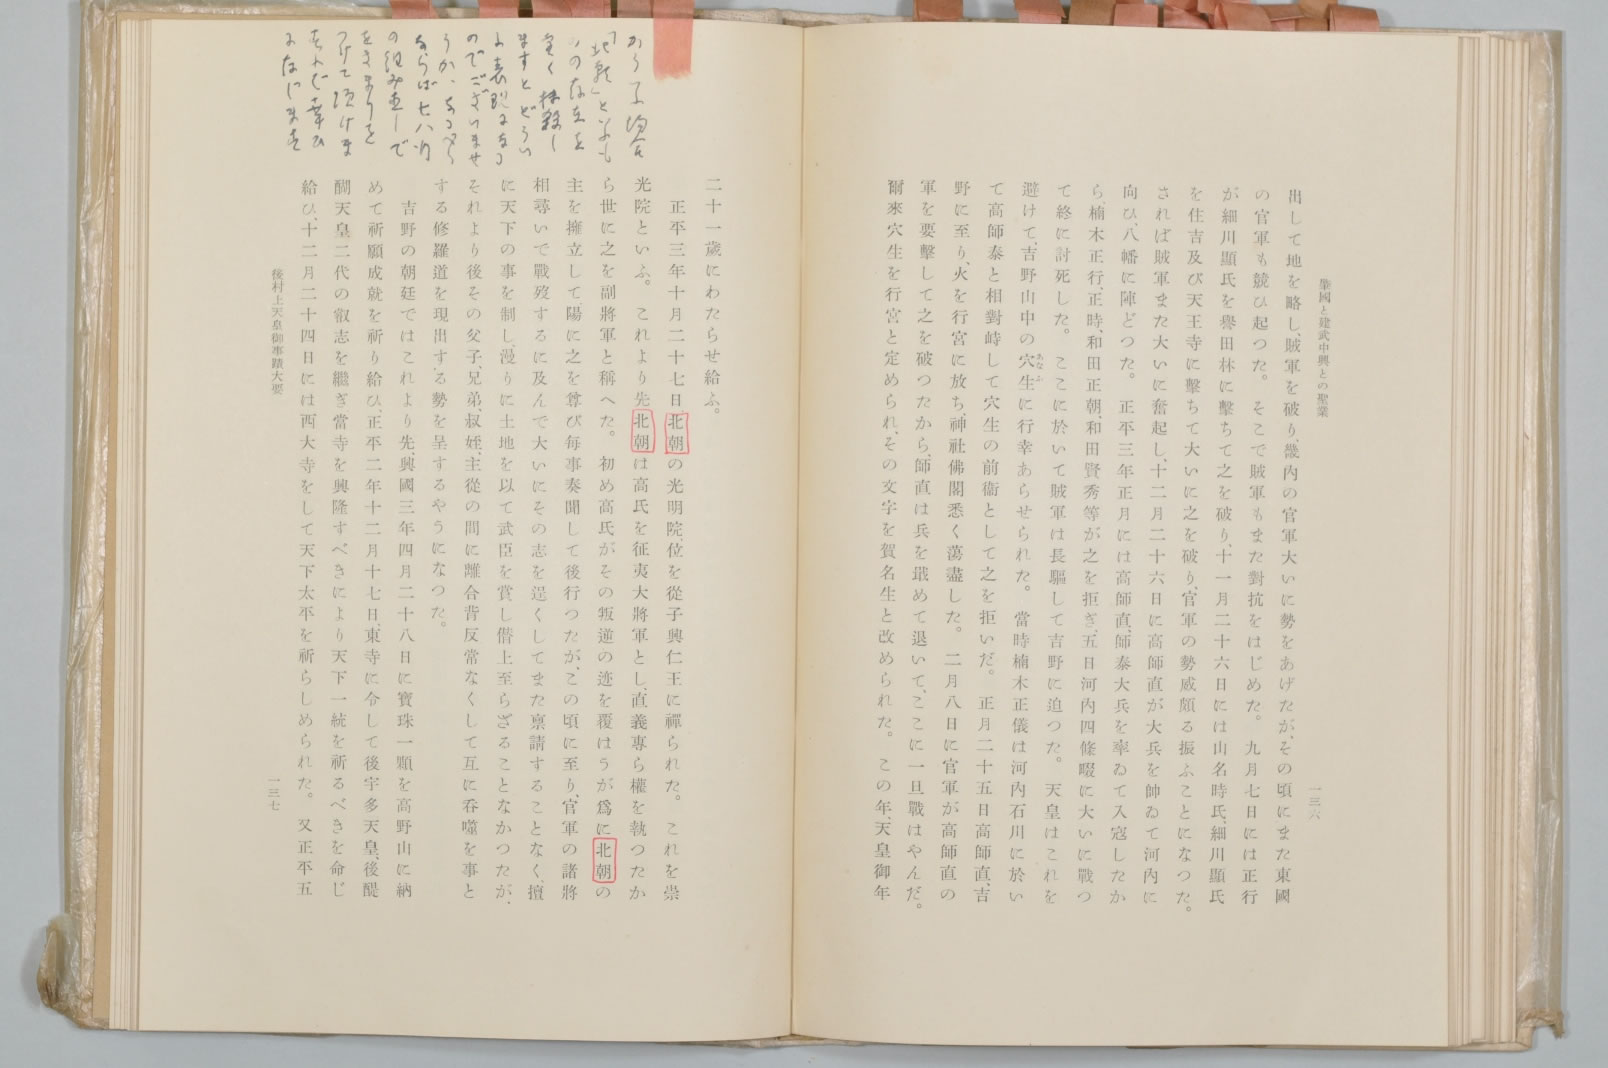 肇國と建武中興との聖業
一三六
出して地を略し、賊軍を破り、畿内の官軍大いに勢をあげたが、その頃にまた東國
の官軍も競ひ起つた。そこで賊軍もまた對抗をはじめた。九月七日には正行
が細川顯氏を譽田林に擊ちて之を破り、十一月二十六日には山名時氏、細川顯氏
を住吉及び天王寺に擊ちて大いに之を破り、官軍の勢威頗る振ふことになつた。
されば賊軍また大いに奮起し、十二月二十六日に高師直が大兵を帥ゐて河内に
向ひ、八幡に陣どつた。正平三年正月には高師直、師泰大兵を率ゐて入寇したか
ら、楠木正行、正時、和田正朝、和田賢秀等が之を拒ぎ、五日河内四條畷に大いに戰つ
て終に討死した。ここに於いて賊軍は長驅して吉野に迫つた。天皇はこれを
避けて、吉野山中の穴生に行幸あらせられた。當時楠木正儀は河内石川に於い
あなふ
て高師泰と相對峙して穴生の前衞として之を拒いだ。正月二十五日高師直、吉
野に至り、火を行宮に放ち、神社佛閣悉く蕩盡した。二月八日に官軍が高師直の
軍を要擊して之を破つたから、師直は兵を戢めて退いて、ここに一旦戰はやんだ。
爾來穴生を行宮と定められ、その文字を賀名生と改められた。この年、天皇御年
二十一歲にわたらせ給ふ。
正平三年十月二十七日、北朝の光明院、位を從子興仁王に禪られた。これを崇
光院といふ。これより先、北朝は高氏を征夷大將軍とし、直義專ら權を執つたか
ら世に之を副將軍と稱へた。初め高氏がその叛逆の迹を覆はうが爲に北朝の
主を擁立して、陽に之を尊び每事奏聞して後行つたが、この頃に至り、官軍の諸將
相尋いで戰歿するに及んで大いにその志を逞くしてまた稟請することなく、擅
に天下の事を制し、漫りに土地を以て武臣を賞し僭上至らざることなかつたが、
それより後その父子、兄弟、叔姪、主從の間に離合背反常なくして互に呑噬を事と
する修羅道を現出する勢を呈するやうになつた。
吉野の朝廷ではこれより先、興國三年四月二十八日に寶珠一顆を高野山に納
めて祈願成就を祈り給ひ、正平二年十二月十七日、東寺に令して後宇多天皇、後醍
醐天皇二代の叡志を繼ぎ當寺を興隆すべきにより天下一統を祈るべきを命じ
給ひ、十二月二十四日には西大寺をして天下太平を祈らしめられた。又正平五
後村上天皇御事蹟大要
一三七
かう云ふ場合
「北朝」と云ふも
のの存在を
全く抹殺し
ますとどうい
ふ表現になる
のでございませ
うか、
ならば七八行
の組み直しで
をきまりを
つけて頂けま
すれば幸ひ
になじます